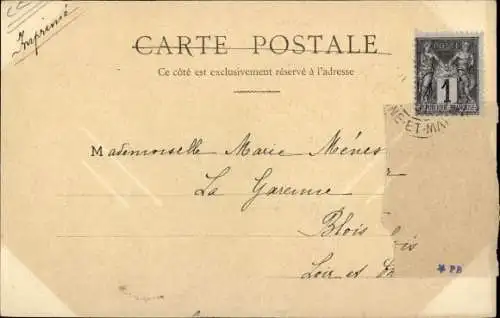 Imprimé
CARTE POSTALE
Ce côté est exclusivement réservé à l'adresse
1
NE-ET-MA
Mademoiselle Marie Ménes
La Garenne
Blois
Loir et
* PB